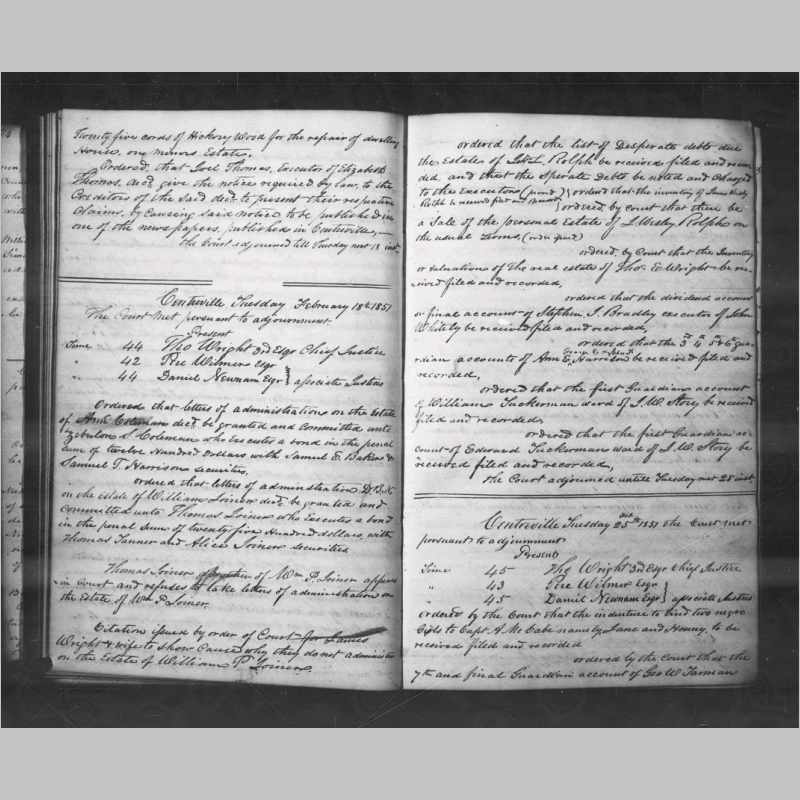 Twenty five cords of Hickory Wood for the repair of dwelling
House, on minors Estate.
Ordered, that Joel Thomas, Executor of Elizabeth
Thomas, decd. give the notice required by law, to the
Creditors of the said decd. to present their respective
Claims, by causing said notice to be published in
one of the news papers, published in Centreville,
The Court adjourned till Tuesday next 18 inst
Centreville Tuesday February 18th 1851
The Court met pursuant to adjournment
Present
Time 44 Tho Wright 3rd Esqr Chief Justice
" 42 Pere Wilmer Esqr
" 44 Daniel Newnam Esqr } associate Justices
Ordered that letters of administration on the Estate
of Ann Coleman decd. be granted and committed unto
S. Coleman who Executes a bond in the penal
sum of twelve Hundred dollars with Samuel E. Baker &
Samuel T. Harrison securities,
ordered that letters of administration D.B.N.
on the estate of William Joiner decd. be granted and
committed unto Thomas Joiner who Executes a bond
in the penal Sum of twenty five Hundred dollars, with
Thomas Tanner and Alice Joiner securities
Thomas Joiner of Wm. P. Joiner appears
in Court and refuses to take letters of administration on
the Estate of Wm P Joiner.
Citation issued by order of Court for James
Wright & wife to show Cause why they do not administer
on the Estate of William P. Joiner
ordered that the list of Desperate debts due
the Estates of Rolph be received filed and recor-
ded, and that the Sperate Debts be noted and Charged
to the Executors } ordered that the inventory of
Rolph be received filed and
ordered by court that there be
a Sale of the personal Estate of J. Wesley Rolph on
the usual terms,
ordered by Court that the Inventory
or valuations of the real estate of Thos. E. Wright be rec-
eived filed and recorded,
ordered that the dividend account
or final account of Stephen J. Bradley executor of John
Whitely be received filed and recorded,
ordered that the 3d 4 5 & 6 gua-
rdian accounts of Ann E. Harrison be received filed and
recorded,
ordered that the first Guardians account
of William Tuckerman ward of J. W. Story be received
filed and recorded,
ordered that the first Guardian ac-
count of Edward Tuckerman ward of J. W. Story be
received filed and recorded,
The Court adjourned untill Tuesday next 25 inst
Centreville Tuesday 25th 1851 the Court met
pursuant to adjournment
Present
Time 45 Tho Wright 3d Esqr Chief Justice
" 43 Pere Wilmer Esqr
" 45 Daniel Newnam Esqr } associate Justices
ordered by the Court that the indenture to bind two negro
Girls to Capt. A. McCabe namely Jane and Henny, to be
received filed and recorded
ordered by the Court that the
7th and final Guardian account of Geo W. Tarman